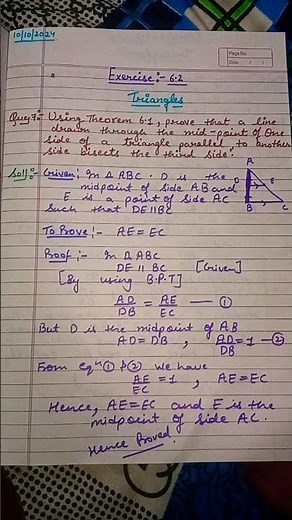 10/10/2024
Page No.
Date
Exercise:- 6.2
Triangles
Ques 7:- Using Theorem 6.1, prove that a line
drawn through the mid-point of one
side of a triangle parallel to another
side bisects the third side.
Soln:- Given:- In Δ ABC . D is the
midpoint of side AB and
E is a point of side AC
Such that DE || BC
A
D E
B C
To Prove:- AE = EC
Proof:- In Δ ABC
DE || BC [Given]
[By using B.P.T]
AD/DB = AE/EC — ①
But D is the midpoint of AB
AD = DB , AD/DB = 1 — ②
From eqn ① & ② we have
AE/EC = 1 , AE = EC
Hence, AE = EC and E is the
midpoint of side AC.
Hence Proved.